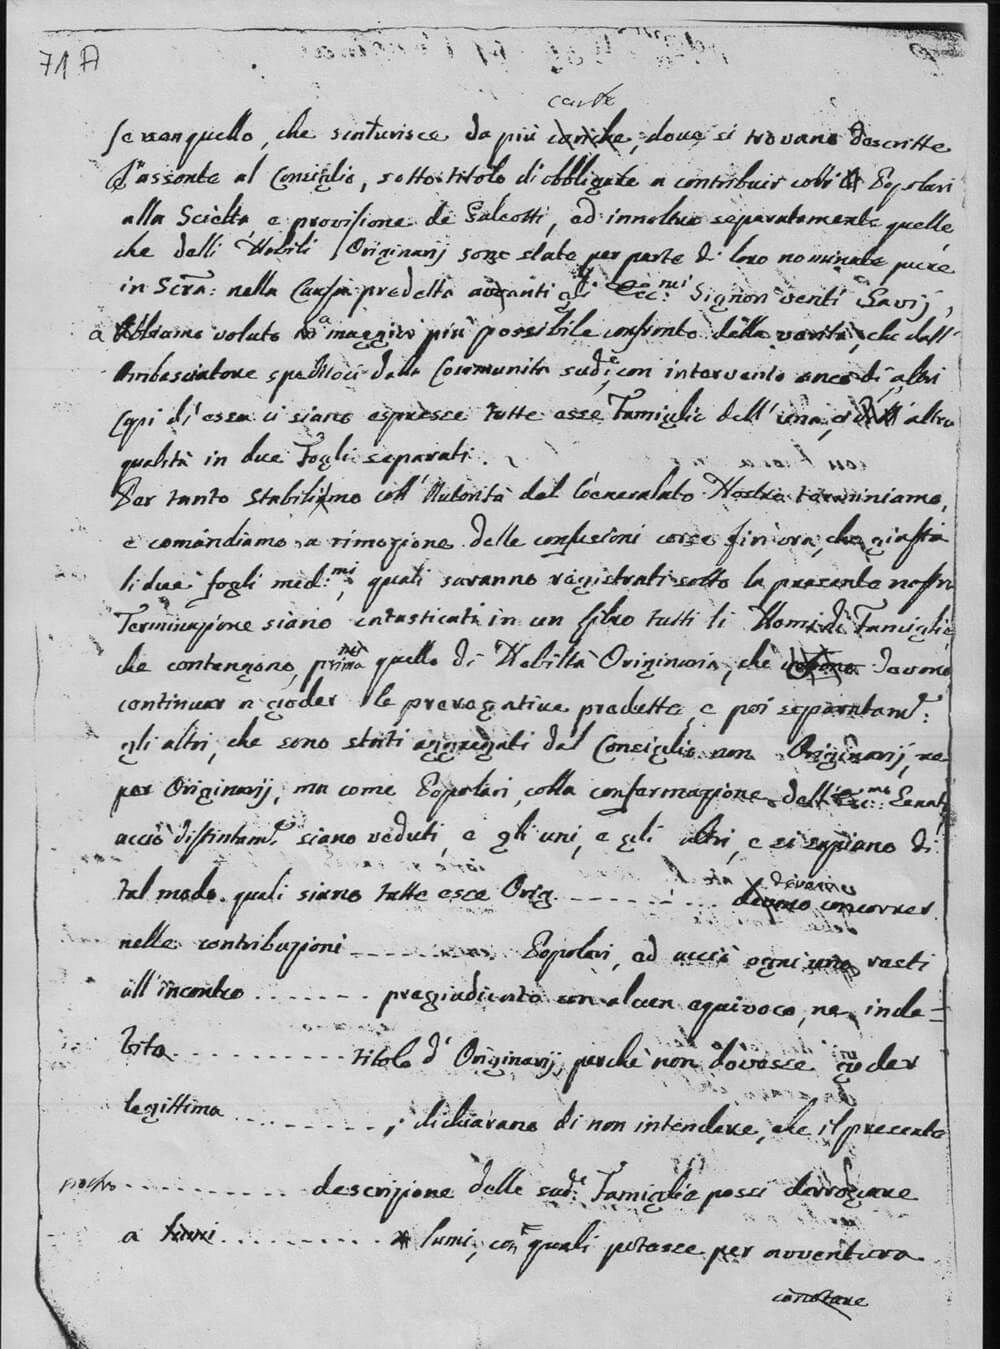 71 A
carte
se non quello, che scaturisce da più cariche, dove si trovano descritte
d'assonte al Consiglio, sotto titolo di obbligate a contribuir colli Popolari
alla Scielta, e provisione de Galeotti, ad innoltre separatamente quelle,
che delli Nobili Originarij sone state per parte di loro nominate pure
in Scra: nella Causa predetta avanti gl' Ecc:mi Signori venti Savij,
a Abbiamo voluto a maggior più possibile confronto della verità, che dall'
Ambasciatore speditoci dalla Communità sud:e, con intervento anco di altri
Capi di essa ci siano espresse tutte esse Famiglie dell' una, e dell' altra
qualità in due Fogli separati.
Per tanto stabiliamo coll' Autorità del Generalato Nostro terminiamo,
e comandiamo a rimozione delle confusioni corse fin'ora, che giusta
li due fogli med:mi, quali saranno registrati sotto la presente nostra
Terminazione siano intasticati in un libro tutti li Nomi di Famiglie
che contengono, prima per quello di Nobiltà Originaria, che devono
continuar a goder le prerogative predette, e poi separatam:
gli altri, che sono stati aggregati dal Consiglio non Originarij, ne
per Originarij, ma come Popolari, colla confermazione dell' Ecc:mo Senato,
acciò distintam:e siano veduti, e gli uni, e gli altri, e si sapiano di
devenire
tal modo quali siano tutte esse Orig. - - - - - - - - devono concorrer
nelle contribuzioni - - - - - - - - Popolari, ad acciò ogni uno resti
all' incontro . . . . . . . pregiudicato con alcun equivoco, ne inde=
bito - - - - - - - - - - titolo d' Originarij, perche non dovesse goder
legittima - - - - - - - - - ; dichiarano di non intendere, che il presente
nostro - - - - - - - - - - descrizione delle sud:e Famiglie possi derrogare
a - - - - - - - - - lumi, con quali potesse per avventura
constare